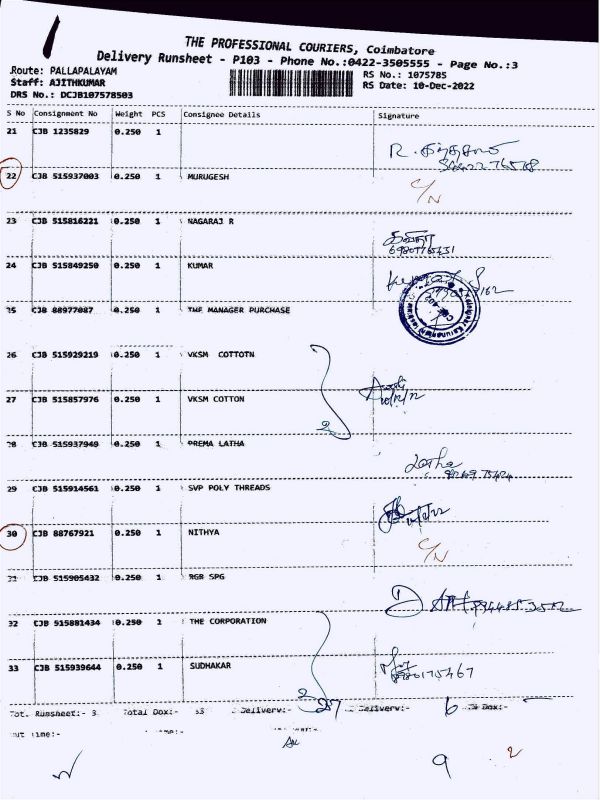 THE PROFESSIONAL COURIERS, Coimbatore
Delivery Runsheet - P103 - Phone No.:0422-3505555 - Page No.:3
Route: PALLAPALAYAM
RS No.: 1075785
Staff: AJITHKUMAR
RS Date: 10-Dec-2022
DRS No.: DCJB107578503
S No Consignment No Weight PCS Consignee Details Signature
21 CJB 1235829 0.250 1
R.
22 CJB 515937003 0.250 1 MURUGESH C/N
23 CJB 515816221 0.250 1 NAGARAJ R
கவிதா
24 CJB 515849250 0.250 1 KUMAR
25 CJB 88977087 0.250 1 THE MANAGER PURCHASE
26 CJB 515929219 0.250 1 VKSM COTTOTN
27 CJB 515857976 0.250 1 VKSM COTTON
10/12/22
2
28 CJB 515937949 0.250 1 PREMA LATHA
Latha
29 CJB 515914561 0.250 1 SVP POLY THREADS
30 CJB 88767921 0.250 1 NITHYA C/N
31 CJB 515905432 0.250 1 RGR SPG
32 CJB 515881434 0.250 1 THE CORPORATION
33 CJB 515939644 0.250 1 SUDHAKAR
2
Tot. Runsheet:- 3 Total Dox:- 33 Delivery:- 27 Delivery:- 6 Dox:-
out time:-
9 2